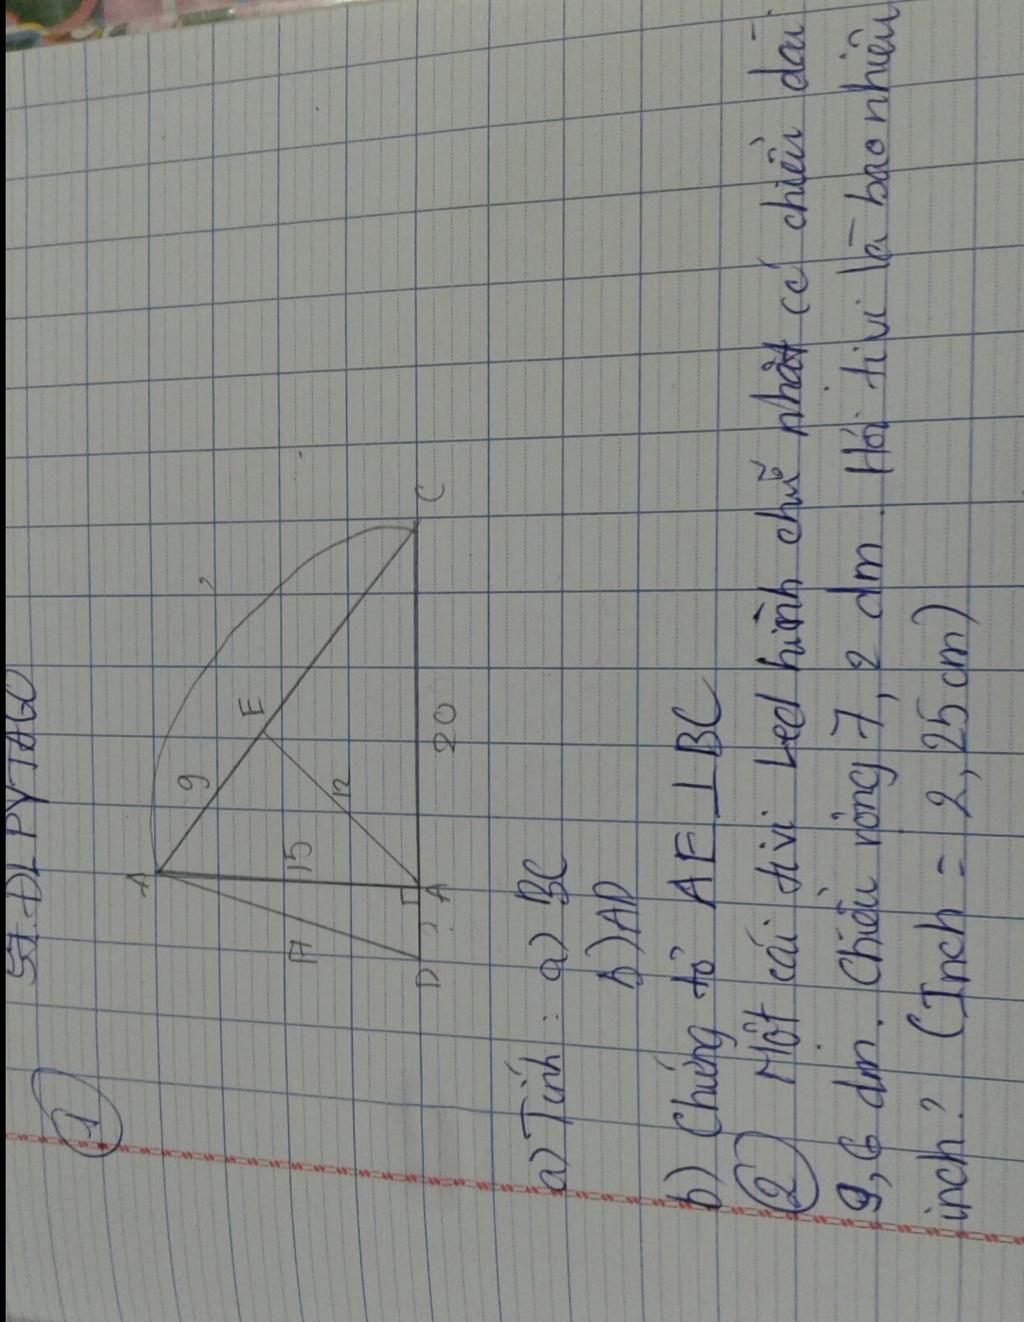 ĐL PYTAGO
1
A
9
E
C
17
15
12
D
?
A
20
a) Tính: a) BC
b) AD
b) Chứng tỏ AE ⊥ BC
2 Một cái tivi Led hình chữ nhật có chiều dài
9,6 dm. Chiều rộng 7,2 dm. Hỏi tivi là bao nhiêu
inch? (Inch = 2,25cm)